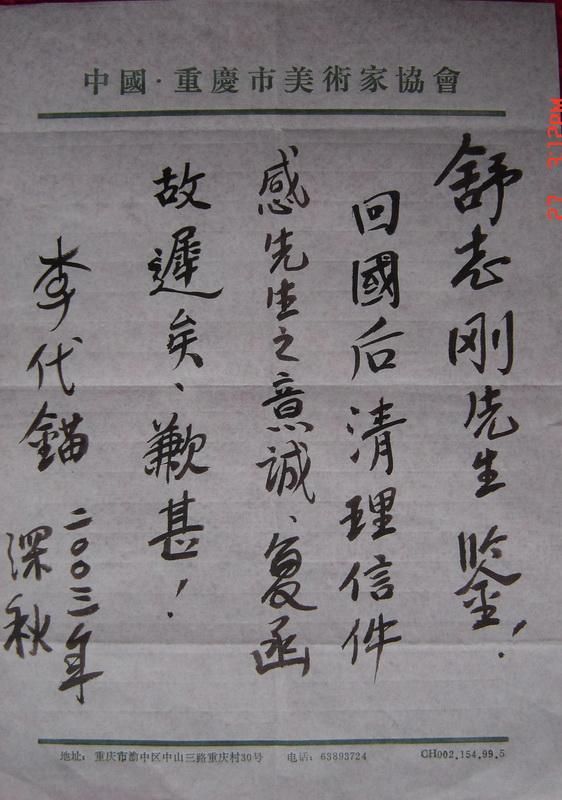 中國·重慶市美術家協會
舒志刚先生鉴！
回國后清理信件
感先生之意誠、复函
故遲矣、歉甚！
李代錨
二〇〇三年
深秋
地址：重庆市渝中区中山三路重庆村30号 电话：63893724 CH002.154.99.5
27 3:12PM